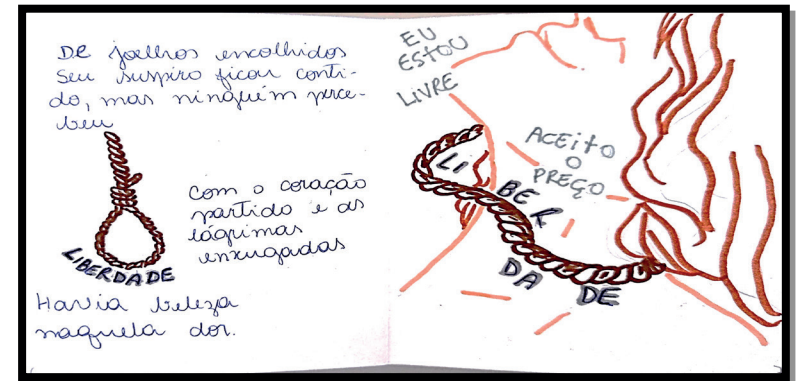 De joelhos encolhidos
Seu suspiro ficou conti-
do, mas ninguém perce-
beu
LIBERDADE
Com o coração
partido e as
lágrimas
enxugadas
Havia beleza
naquela dor.
EU
ESTOU
LIVRE
ACEITO
O
PREÇO
LI
BER
DA DE